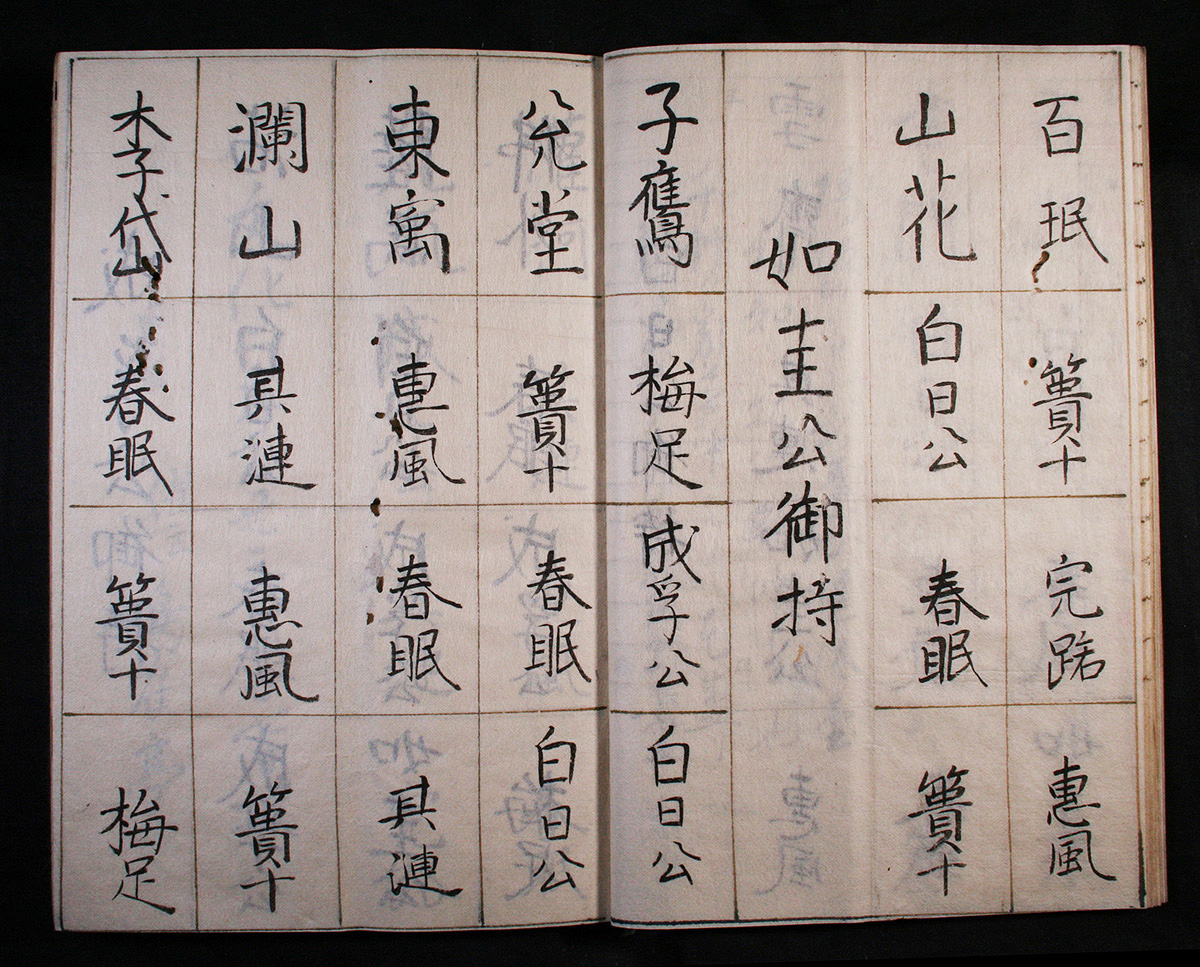 百珉
簣十
完踞
惠風
山花
白日公
春眠
簣十
如圭公御持
子鷹
梅足
成孚公
白日公
允堂
簣十
春眠
白日公
東寓
惠風
春眠
其漣
瀾山
其漣
惠風
簣十
木子岱山
春眠
簣十
梅足